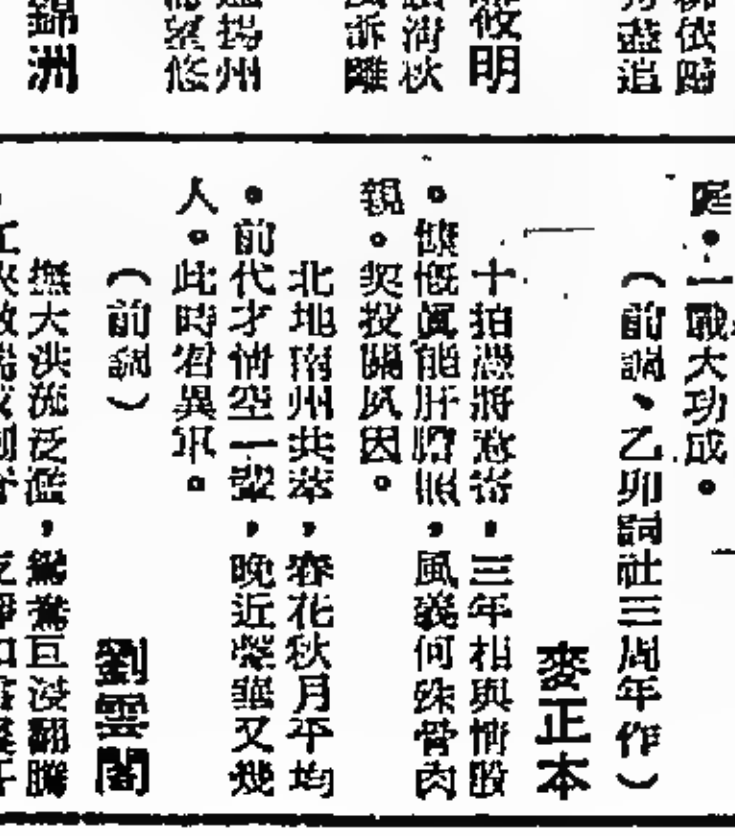 依隨
盡追
攸明
清秋
訴離
揚州
望悠
錦洲
庭。一戰大功成。
（前調、乙卯詞社三周年作）
麥正本
十拍憑將意寄，三年相與情殷
。慷慨眞能肝膽照，風義何殊骨肉
親。契投關夙因。
北地南州共萃，春花秋月平均
。前代才情空一輩，晚近榮華又幾
人。此時君異軍。
（前調）
劉雲閣
撫大洪流泛濫，鴛鴦巨浸翻騰